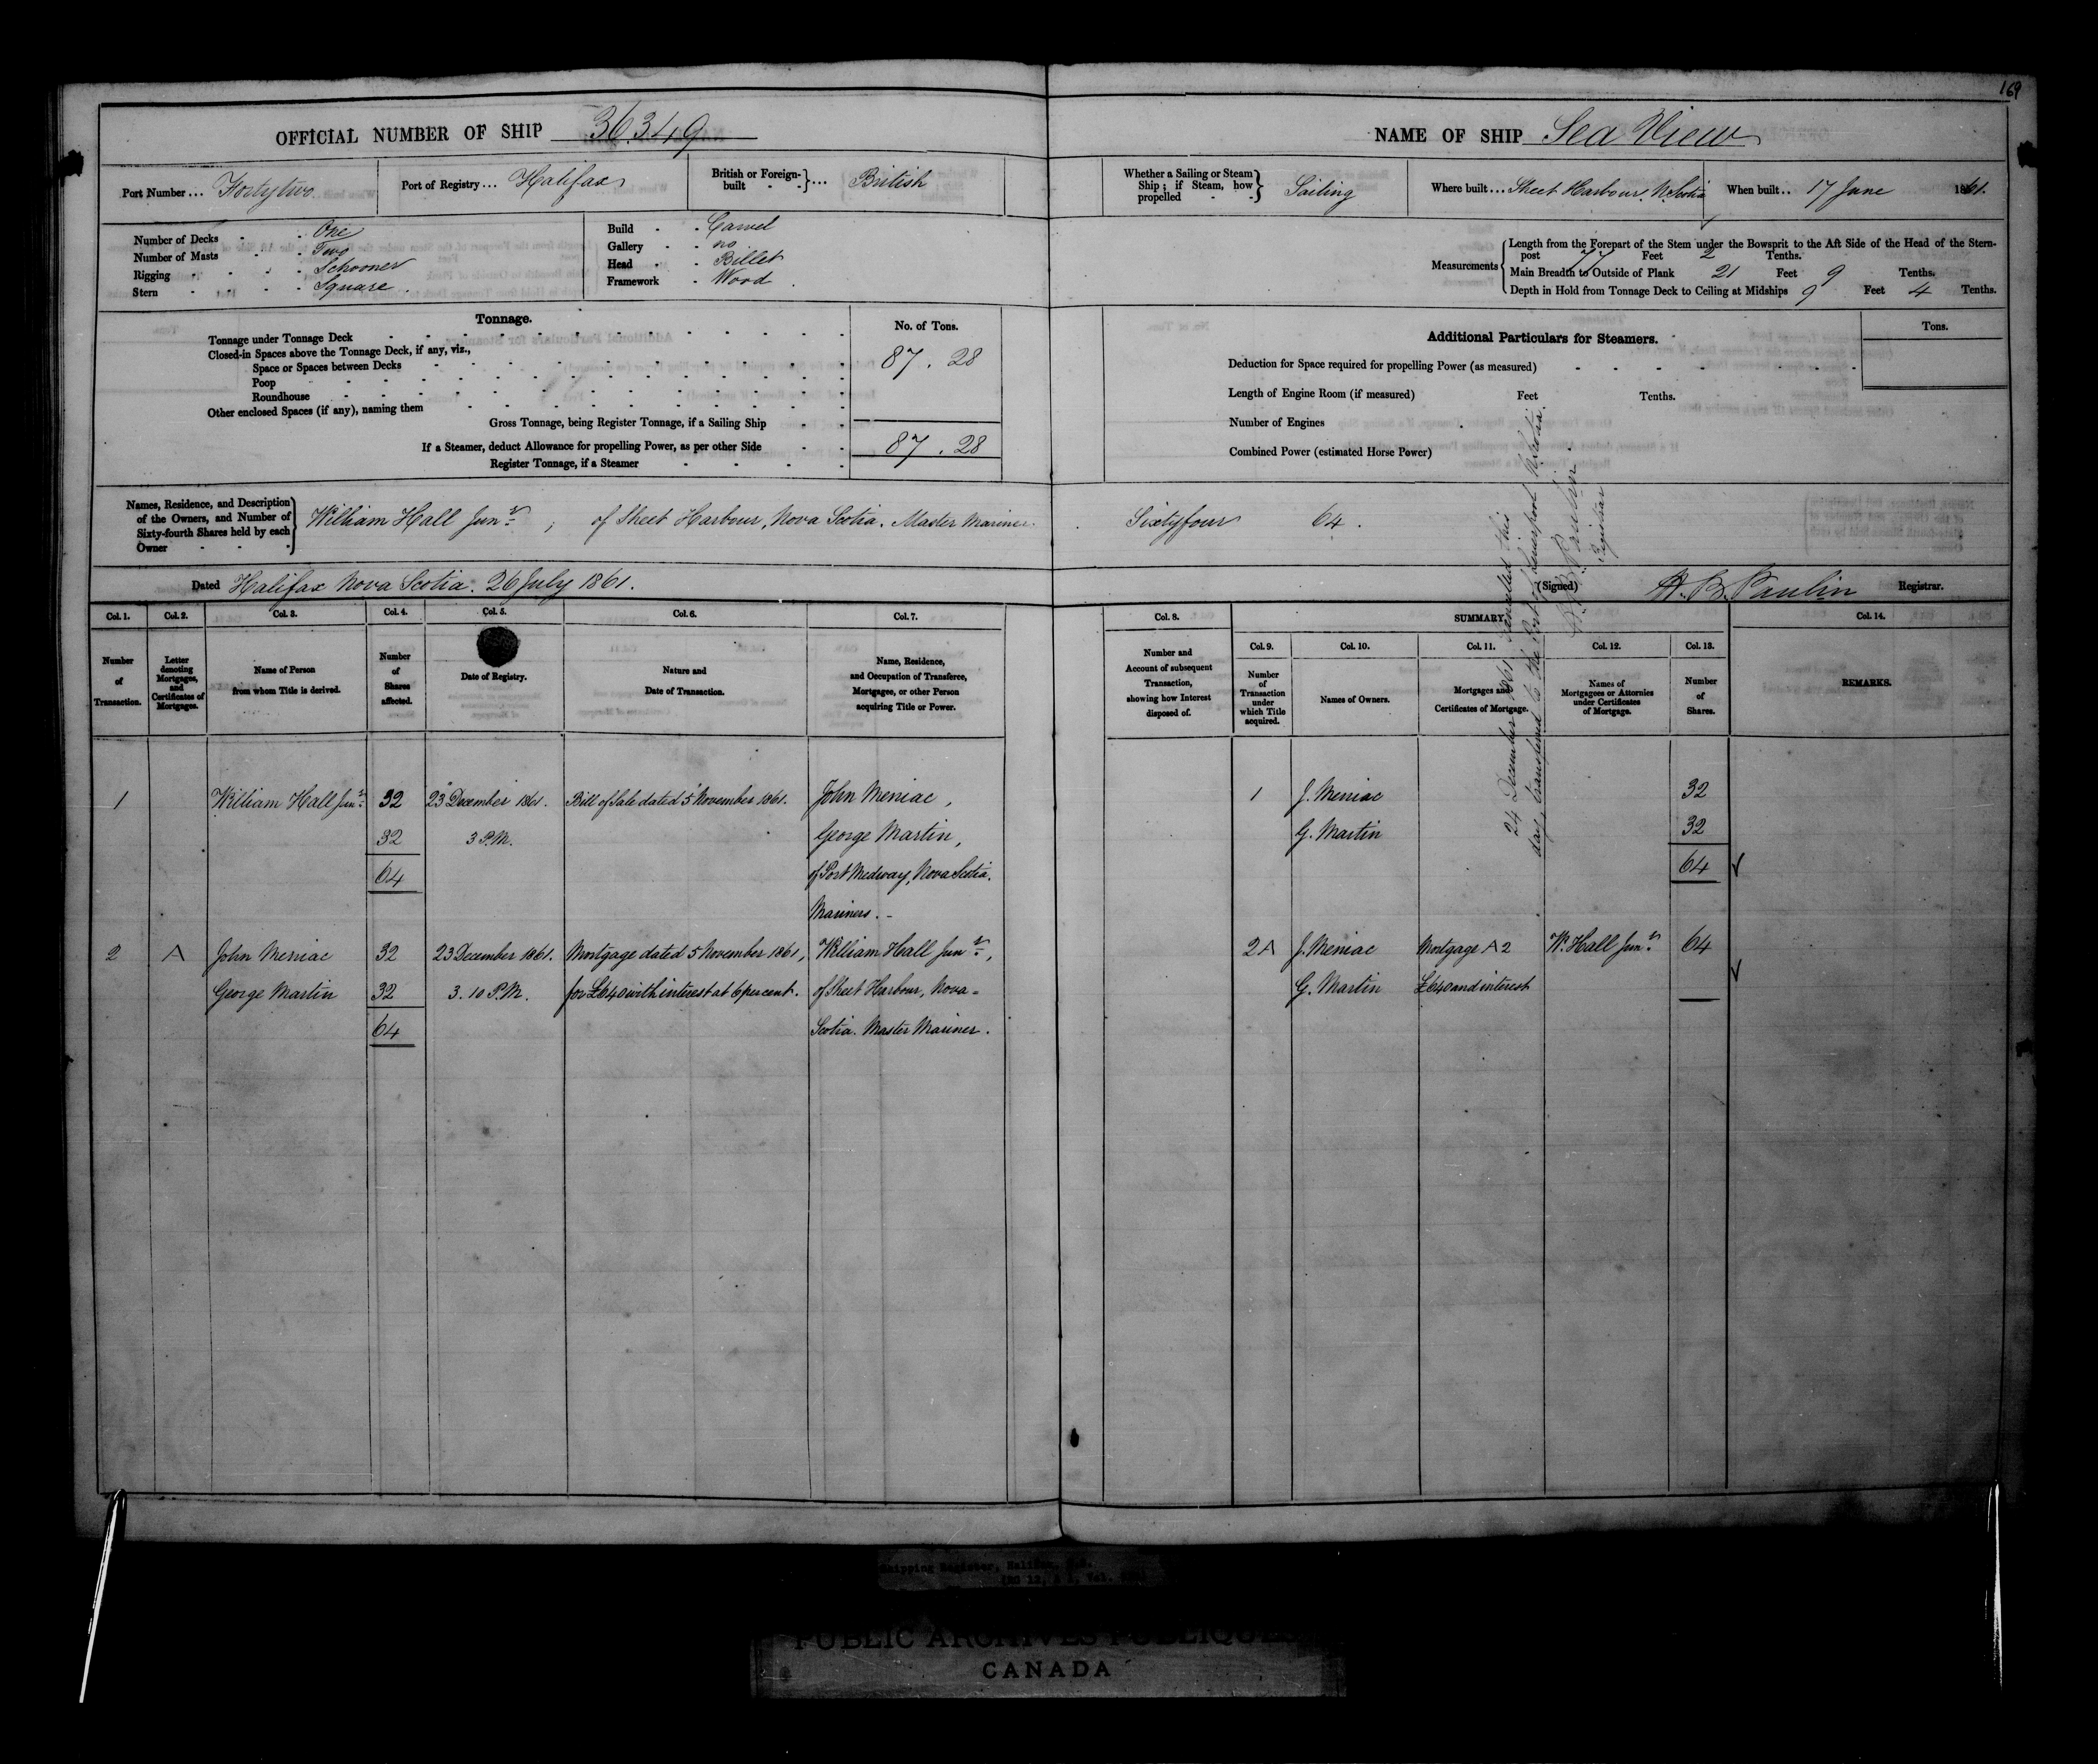 169
OFFICIAL NUMBER OF SHIP 36.349
NAME OF SHIP Sea View
Port Number ... Fortytwo
Port of Registry ... Halifax
British or Foreign-built - - } ... British
Whether a Sailing or Steam Ship ; if Steam, how propelled - - } Sailing
Where built ... Sheet Harbour. N. Scotia
When built .. 17 June 1861.
Number of Decks - - One
Number of Masts - - Two
Rigging - - - - Schooner
Stern - - - - Square.
Build - - Carvel
Gallery - - no
Head - - Billet
Framework - Wood
Measurements
Length from the Forepart of the Stem under the Bowsprit to the Aft Side of the Head of the Stern-
post 77 Feet 2 Tenths.
Main Breadth to Outside of Plank 21 Feet 9 Tenths.
Depth in Hold from Tonnage Deck to Ceiling at Midships 9 Feet 4 Tenths.
Tonnage.
No. of Tons.
Tonnage under Tonnage Deck
Closed-in Spaces above the Tonnage Deck, if any, viz.,
87.28
Space or Spaces between Decks
Poop
Roundhouse
Other enclosed Spaces (if any), naming them
Gross Tonnage, being Register Tonnage, if a Sailing Ship
If a Steamer, deduct Allowance for propelling Power, as per other Side
87.28
Register Tonnage, if a Steamer
Additional Particulars for Steamers.
Tons.
Deduction for Space required for propelling Power (as measured)
Length of Engine Room (if measured) Feet Tenths.
Number of Engines
Combined Power (estimated Horse Power)
Names, Residence, and Description
of the Owners, and Number of
Sixty-fourth Shares held by each
Owner
William Hall Junr ; of Sheet Harbour, Nova Scotia. Master Mariner. Sixtyfour 64.
Dated Halifax Nova Scotia. 26 July 1861.
(Signed) H. B. Paulin Registrar.
Col. 1. Col. 2. Col. 3. Col. 4. Col. 5. Col. 6. Col. 7.
Number of Transaction.
Letter denoting Mortgages, and Certificates of Mortgages.
Name of Person from whom Title is derived.
Number of Shares affected.
Date of Registry.
Nature and Date of Transaction.
Name, Residence, and Occupation of Transferee, Mortgagee, or other Person acquiring Title or Power.
Col. 8.
Number and Account of subsequent Transaction, showing how Interest disposed of.
SUMMARY
Col. 9. Col. 10. Col. 11. Col. 12. Col. 13.
Number of Transaction under which Title acquired.
Names of Owners.
Mortgages and Certificates of Mortgage.
Names of Mortgagees or Attornies under Certificates of Mortgage.
Number of Shares.
Col. 14.
REMARKS.
1 William Hall Junr 32 23 December 1861. Bill of Sale dated 5 November 1861. John Meniac,
32 3 P.M. George Martin,
64 of Port Medway, Nova Scotia.
Mariners. -
2 A John Meniac 32 23 December 1861. Mortgage dated 5 November 1861, William Hall Junr,
George Martin 32 3.10 P.M. for £640 with interest at 6 per cent. of Sheet Harbour, Nova=
64 Scotia. Master Mariner.
1 J. Meniac 32
G. Martin 32
64
2A J. Meniac Mortgage A 2 W. Hall Junr 64
G. Martin £640 and interest
24 December 1861 Cancelled this
day, transferred to the Port of Liverpool N. Scotia.
H. B. Paulin.
Registrar
Shipping Register, Halifax, N.S.
PUBLIC ARCHIVES PUBLIQUES
CANADA